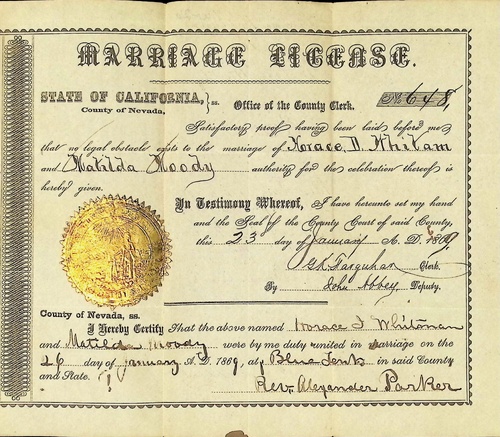 MARRIAGE LICENSE.
STATE OF CALIFORNIA, } ss. Office of the County Clerk. No 648,
County of Nevada,
Satisfactory proof having been laid before me
that no legal obstacle exists to the marriage of Horace D. Whitam
and Matilda Moody authority for the celebration thereof is
hereby given.
In Testimony Whereof, I have hereunto set my hand
and the Seal of the County Court of said County,
this 23 day of January A. D. 1869,
Farquhar Clerk.
By John Abbey, Deputy.
County of Nevada, ss.
I Hereby Certify That the above named Horace Whitman
and Matilda Moody were by me duly united in marriage on the
26 day of January A. D. 1869, at Blue Tent in said County
and State.
Rev. Alexander Parker